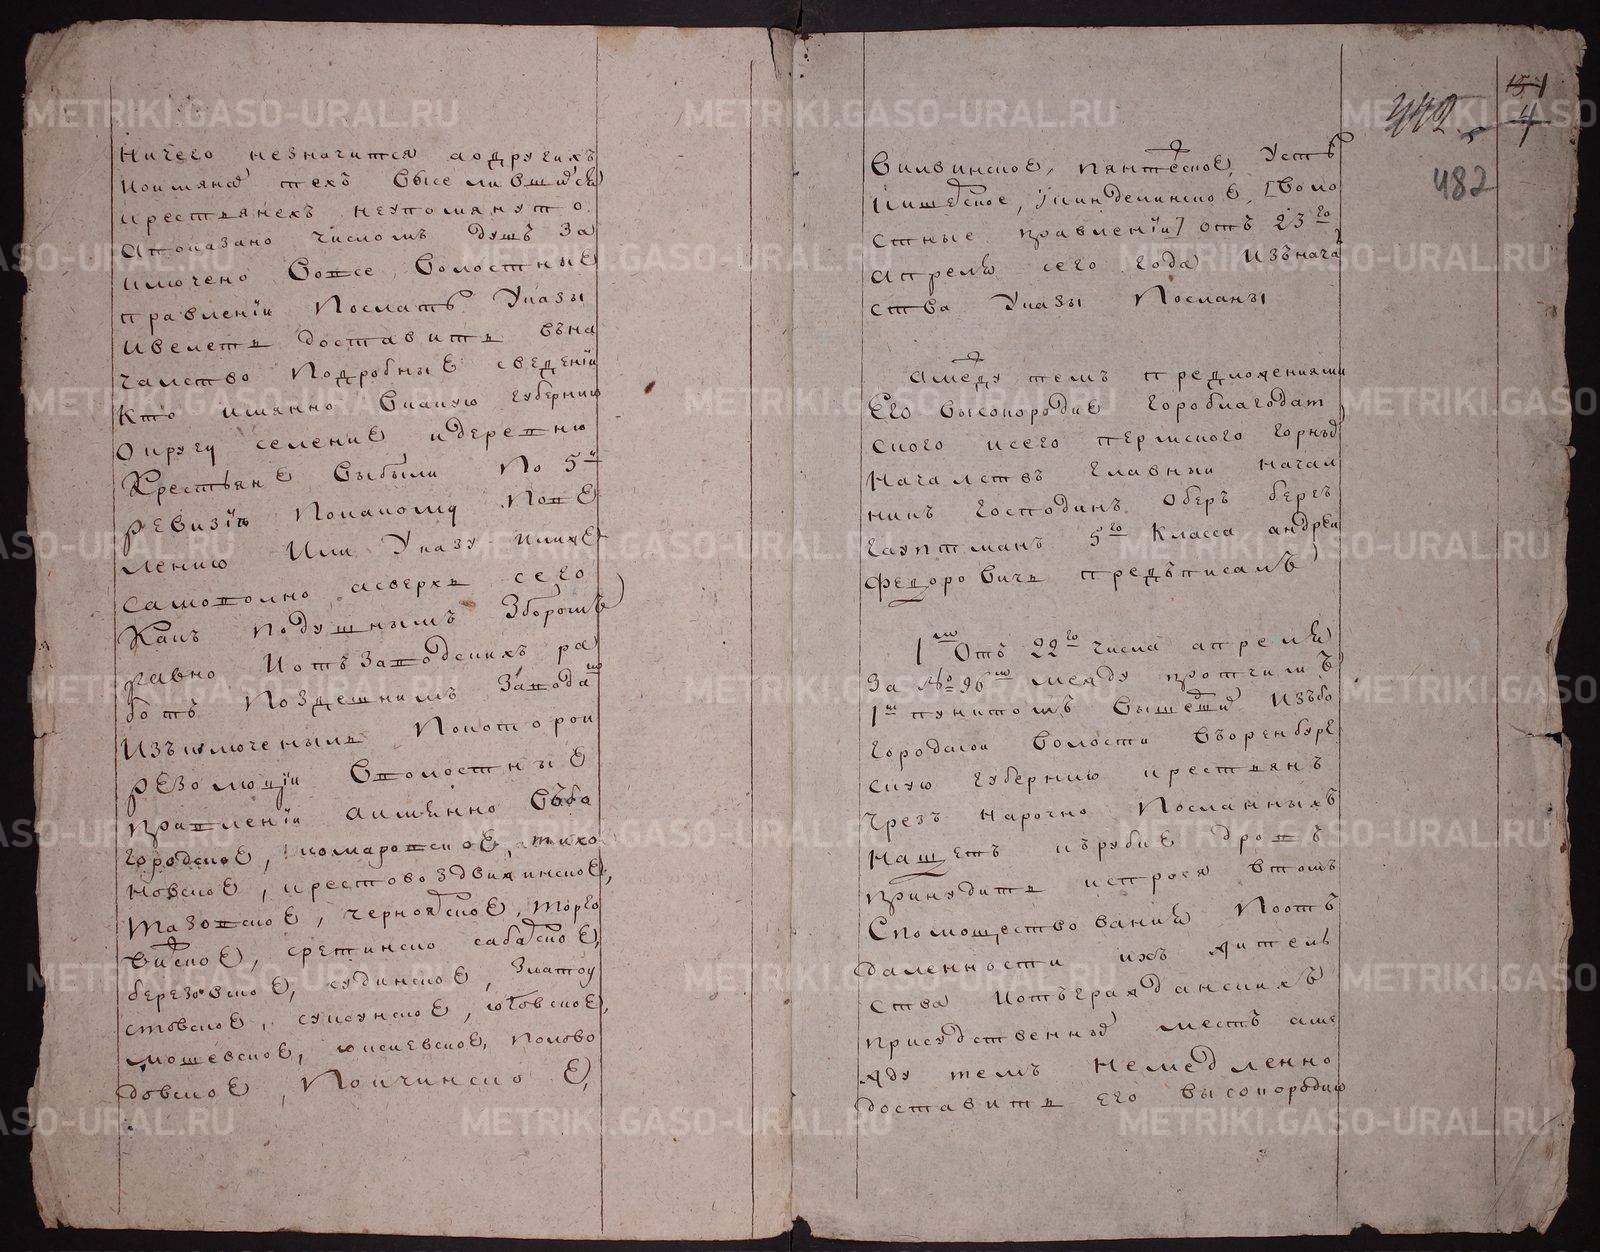 ничего незначится а о другихъ
поимянѣ техъ выселившихся
крестьянехъ неупомянуто
а показано числомъ душъ За
ключено Во все волостные
правленіи Послать Указы
и велеть доставить въ на
чалство Подробные сведеніи
кто имянно Вкакую губернию
округу селение и деревню
Крестьяне выбыли по 5й
ревизіи По какому Пове
лению Или Указу или же
самоволно а сверхъ сего
Какъ подушнымъ Зборомъ
равно И отъ Заводскихъ ра
ботъ По здешнимъ Заводамъ
Изъключены ль По которои
резолюціи в волостные
правленіи а именно Въбо
городское, комаровское, тихо
новское, крестовоздвиженское,
мазовское, черноя͠ское, торго
вижское, сретинско сабарское,
березовское, судинское, Златоу
стовское, суксунское, юговское,
мошевское, юсиевское, половo
довское, Покчинское,
Вилвинское, пянтежское Усть
кишерское, кинделинское, [Воло
стные правленіи] отъ 23го
апреля сего года Изъ нача
ства Указы Посланы
а между темъ предложениями
Его высокородие гороблагодат
ского и сего пермского горныхъ
Началствъ главныи начал
никъ господинъ оберъ берг
гауптманъ 5го Класса андреи
федоровичь предписалъ
1мъ Отъ 22го числа апреля
За №96мъ между протчимъ
1м пунктомъ вышедшихъ Изъ бо
городскои волости въ оренбург
скую губернию крестьянъ
чрезъ нарочно Посланныхъ
На щетъ къ рубке дровъ
принудить и спрося втомъ
Спомоществования Поотъ
даленности ихъ жител
ства И отъ гражданскихъ
присудственныхъ местъ а ме
жду темъ немедленно
доставить его высокородию
482
4
482